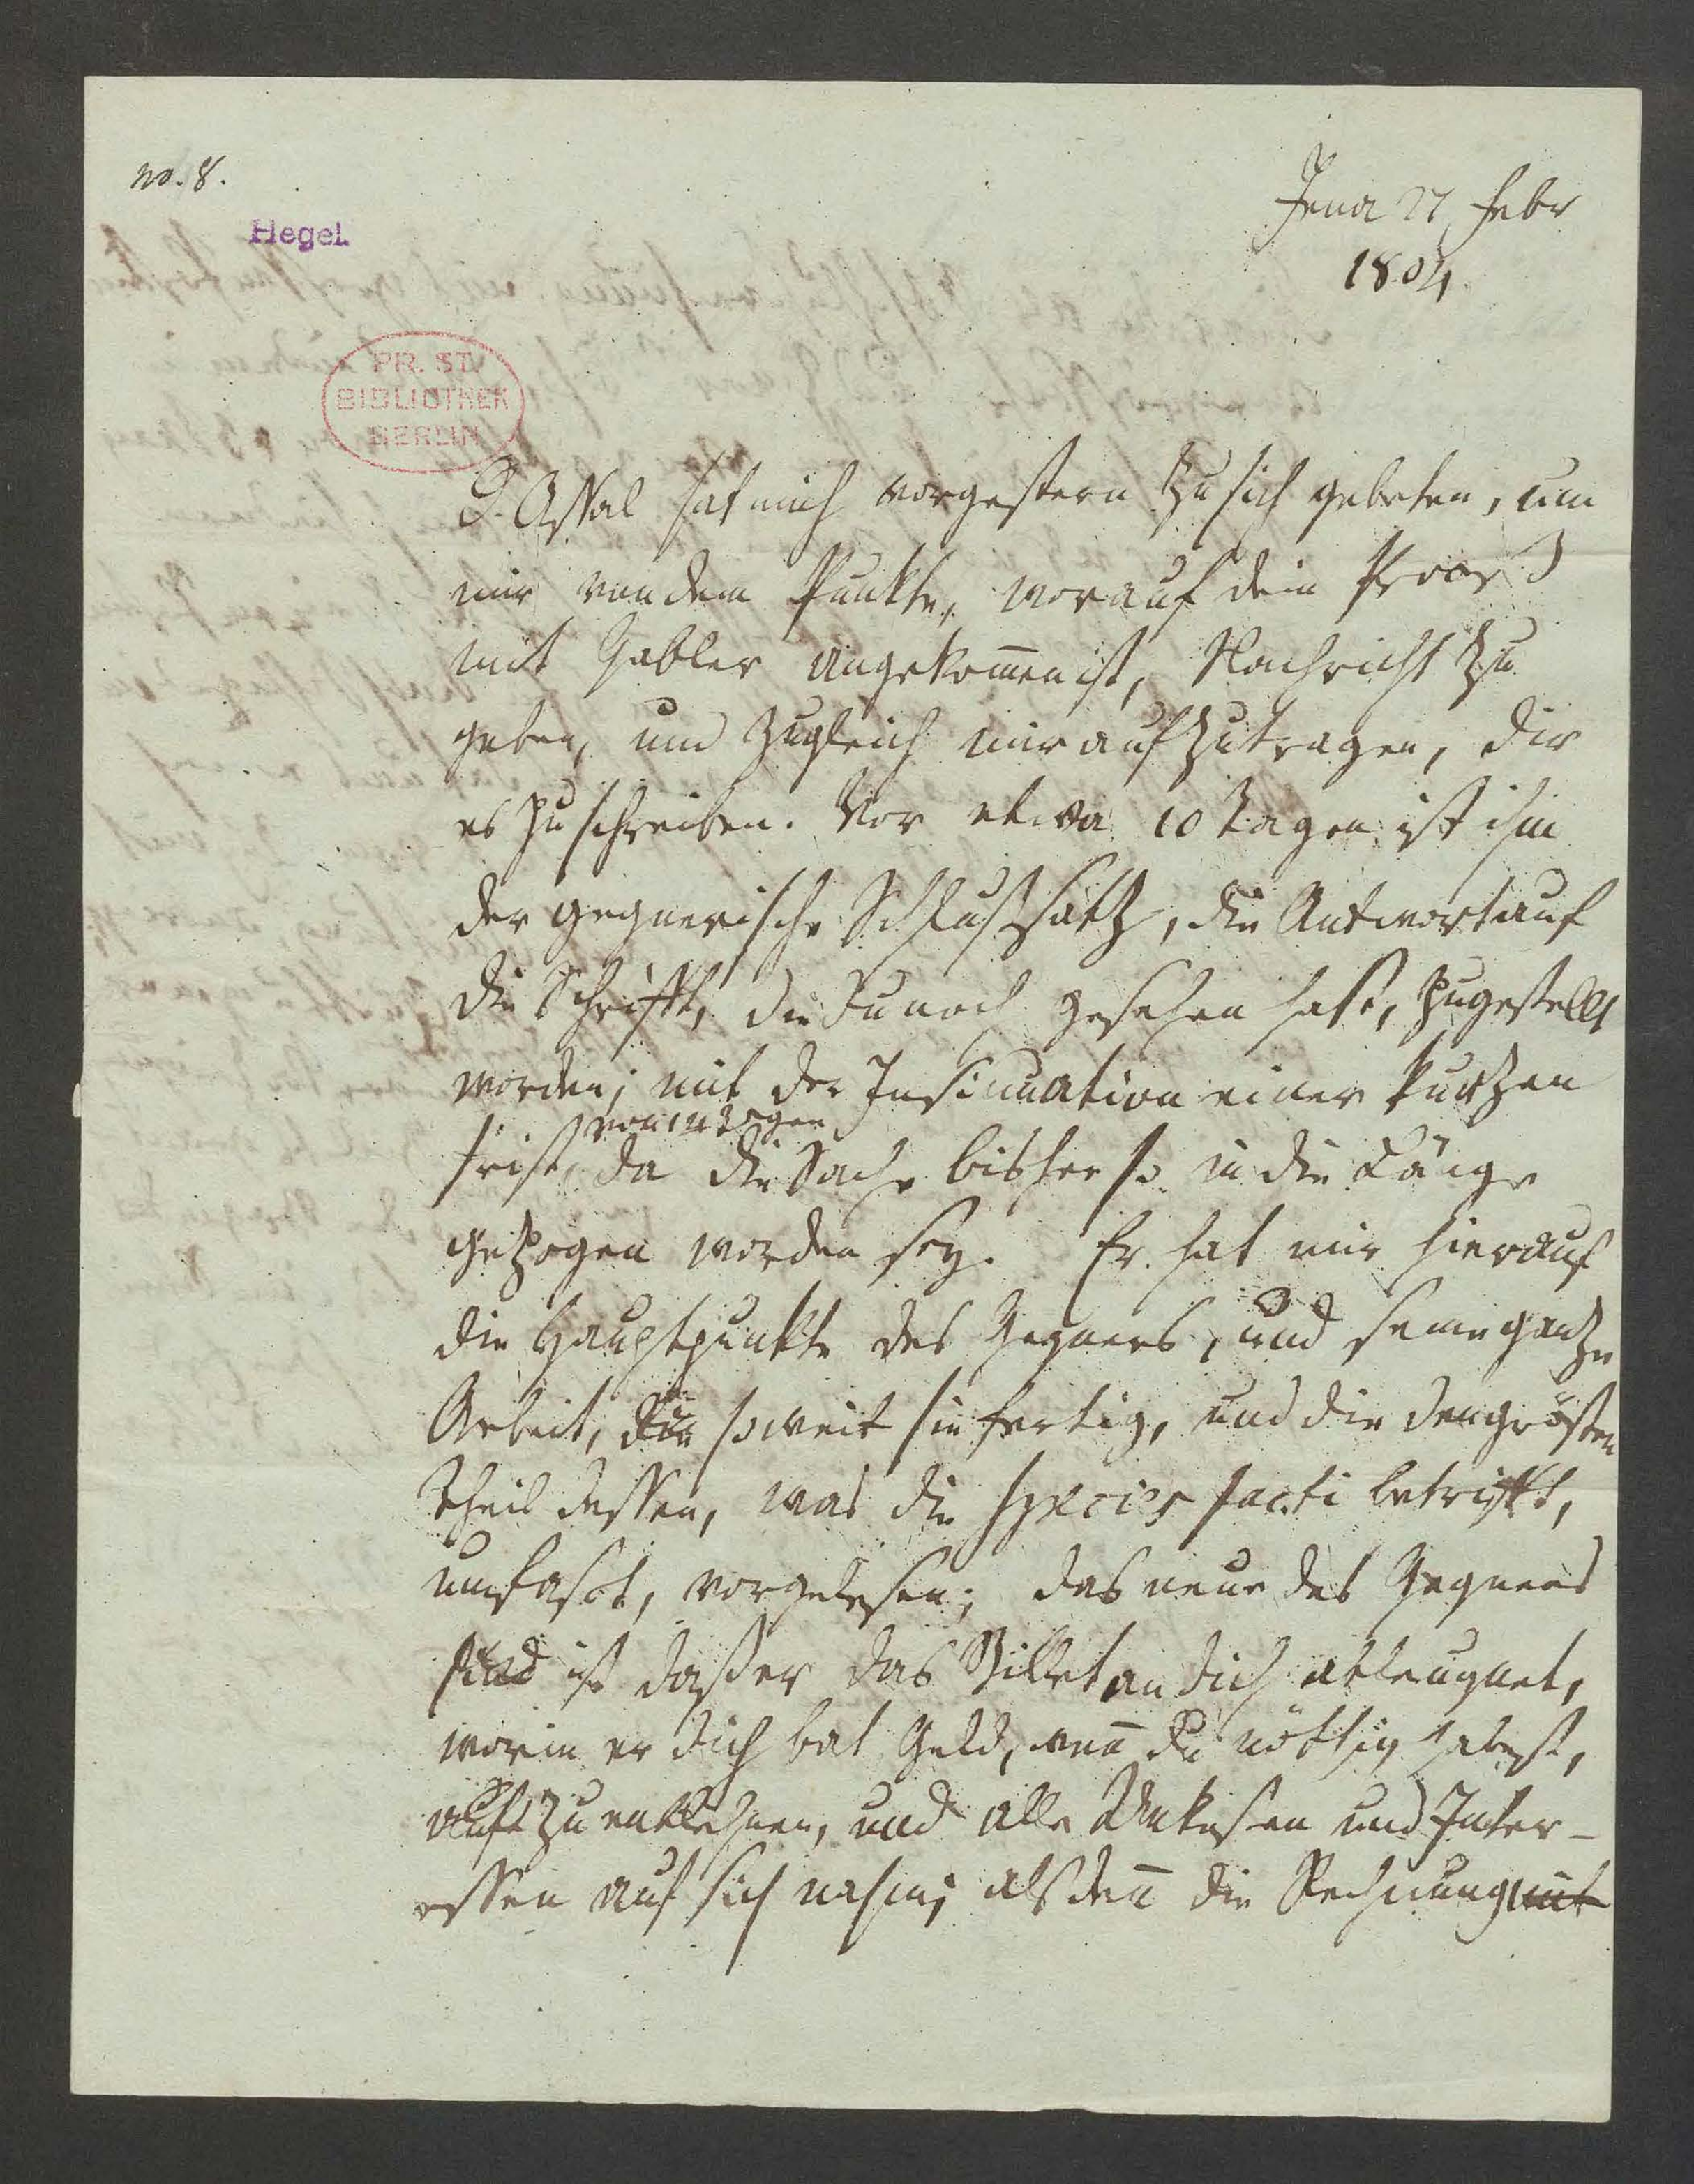 no. 8.
Hegel.
Jena 27 Febr
1804.
PR. ST.
BIBLIOTHEK
BERLIN
D. Assal hat mich vorgestern zu sich gebeten, um
mir von dem Punkte, worauf dein Proceß
mit Gabler angekom̄en ist, Nachricht zu
geben, und zugleich mir aufzutragen, dir
es zu schreiben. Vor etwa 10 Tagen ist ihm
der gegnerische Schlußsatz, die Antwort auf
die Schrifft, die du noch gesehen hast, zugestellt
worden; mit der Insinuation einer kurzen
von 14 Tagen
Frist, da die Sache bisher so in die Länge
gezogen worden sey. Er hat mir hierauf
die Hauptpunkte des Gegners, und seine ganze
Arbeit, die soweit sie fertig, und die den größten
Theil dessen, was die species facti betrifft,
umfasst, vorgelesen; das neue des Gegners
sind ist daß er das Billet an dich ableugnet,
worin er dich bat Geld, wen̄ du nöthig habest,
aufzuentlehnen, und alle Unkosten und Inter-
essen auf sich nahm; alsden̄ die Rechnung mit